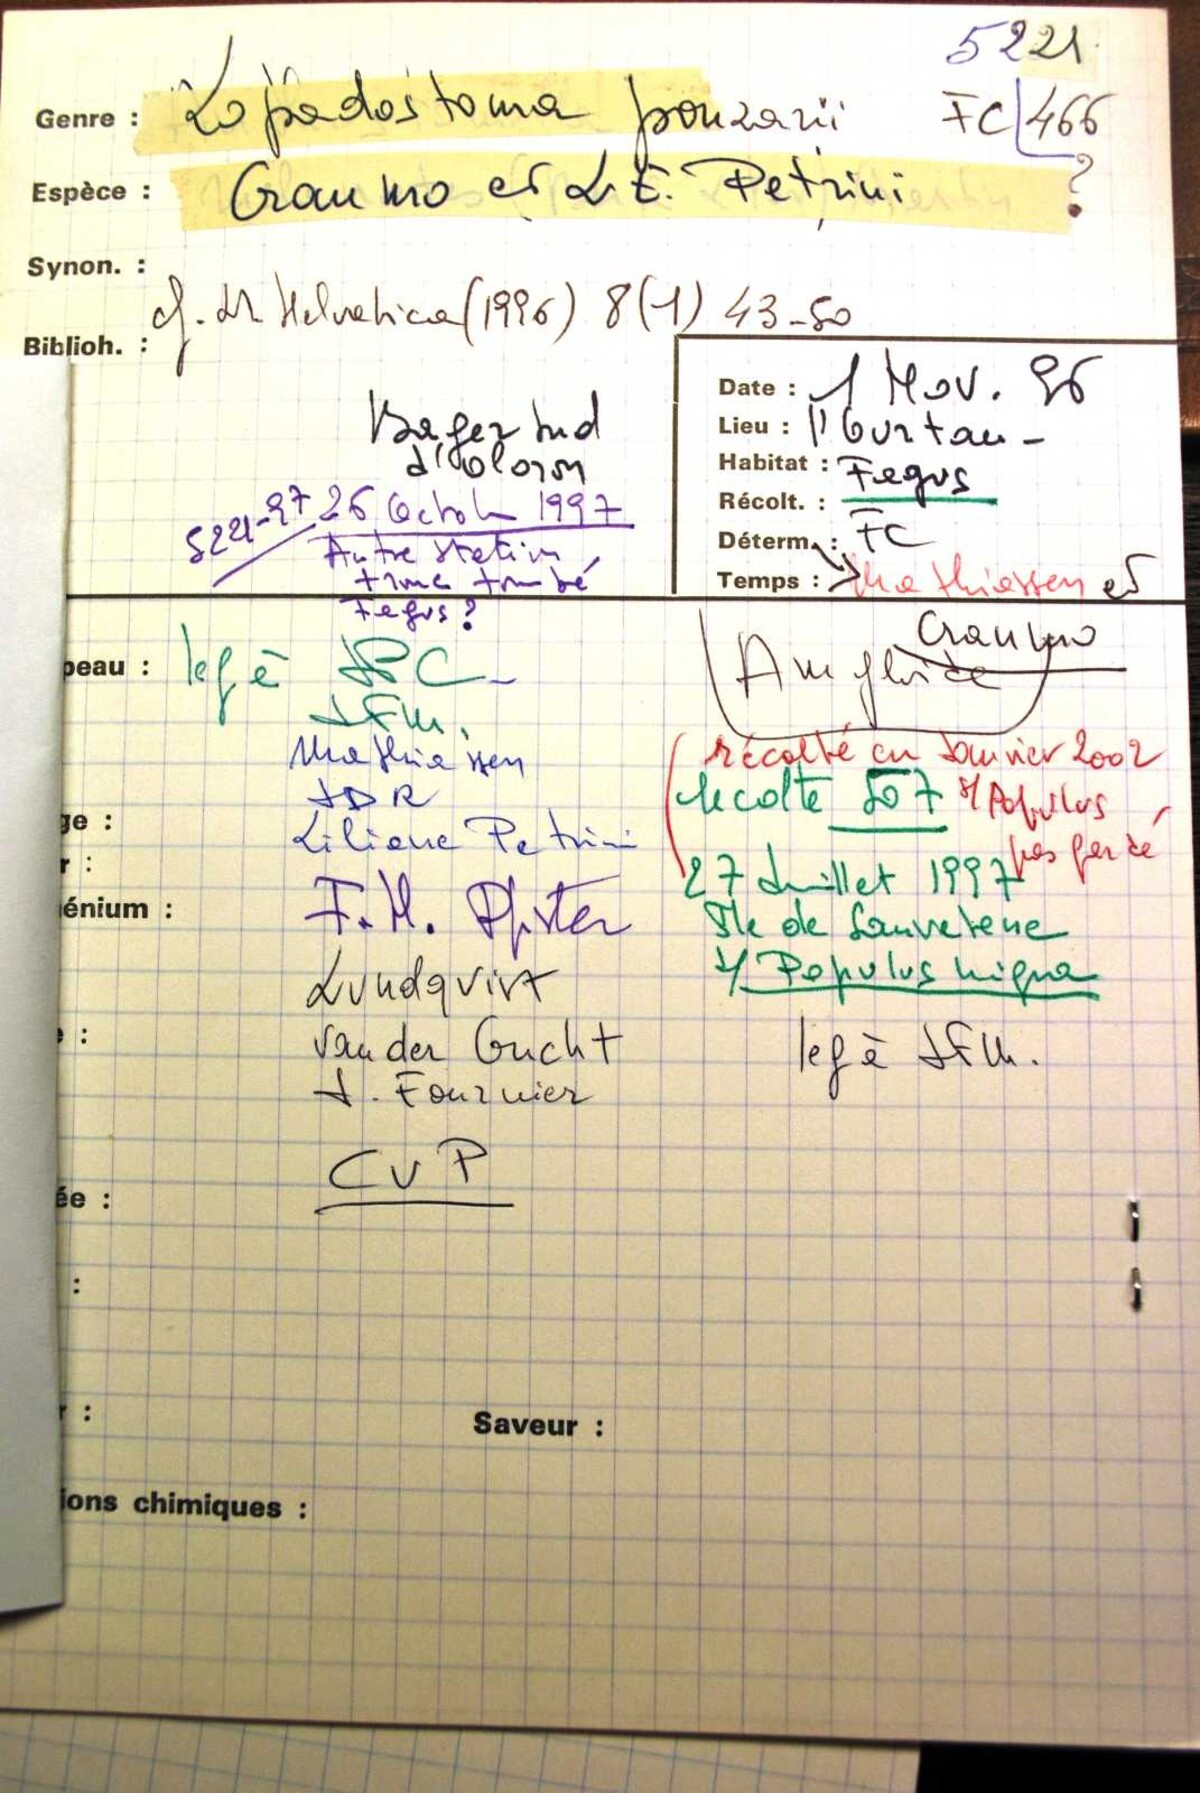 5221
Genre : Lopadostoma pouzarii FC 466
Espèce : Granmo et L.E. Petrini ?
Synon. :
cf. M. Helvetica (1996) 8(1) 43-50
Biblioh. :
Date : 1 Nov. 96
Bager sud
d'Oloron
Lieu : l'Ourtau -
Habitat : Fagus
Récolt. :
Déterm. : FC
Temps : Mathiassen et
Granmo
5221-97 26 Octob 1997
Autre station
tronc tombé
Fagus ?
peau : leg à JPC -
JFM.
Mathiassen
JDR
Liliane Petrini
F.M. Pfister
Lundqvist
van der Gucht
J. Fournier
CVP
Amyloïde
récolté en Janvier 2002
s/ Populus
pas gardé
récolte 507
27 Juillet 1997
Ile de Sauveterre
s/ Populus nigra
leg à JFM.
ge :
r :
énium :
e :
ée :
:
r :
Saveur :
ions chimiques :